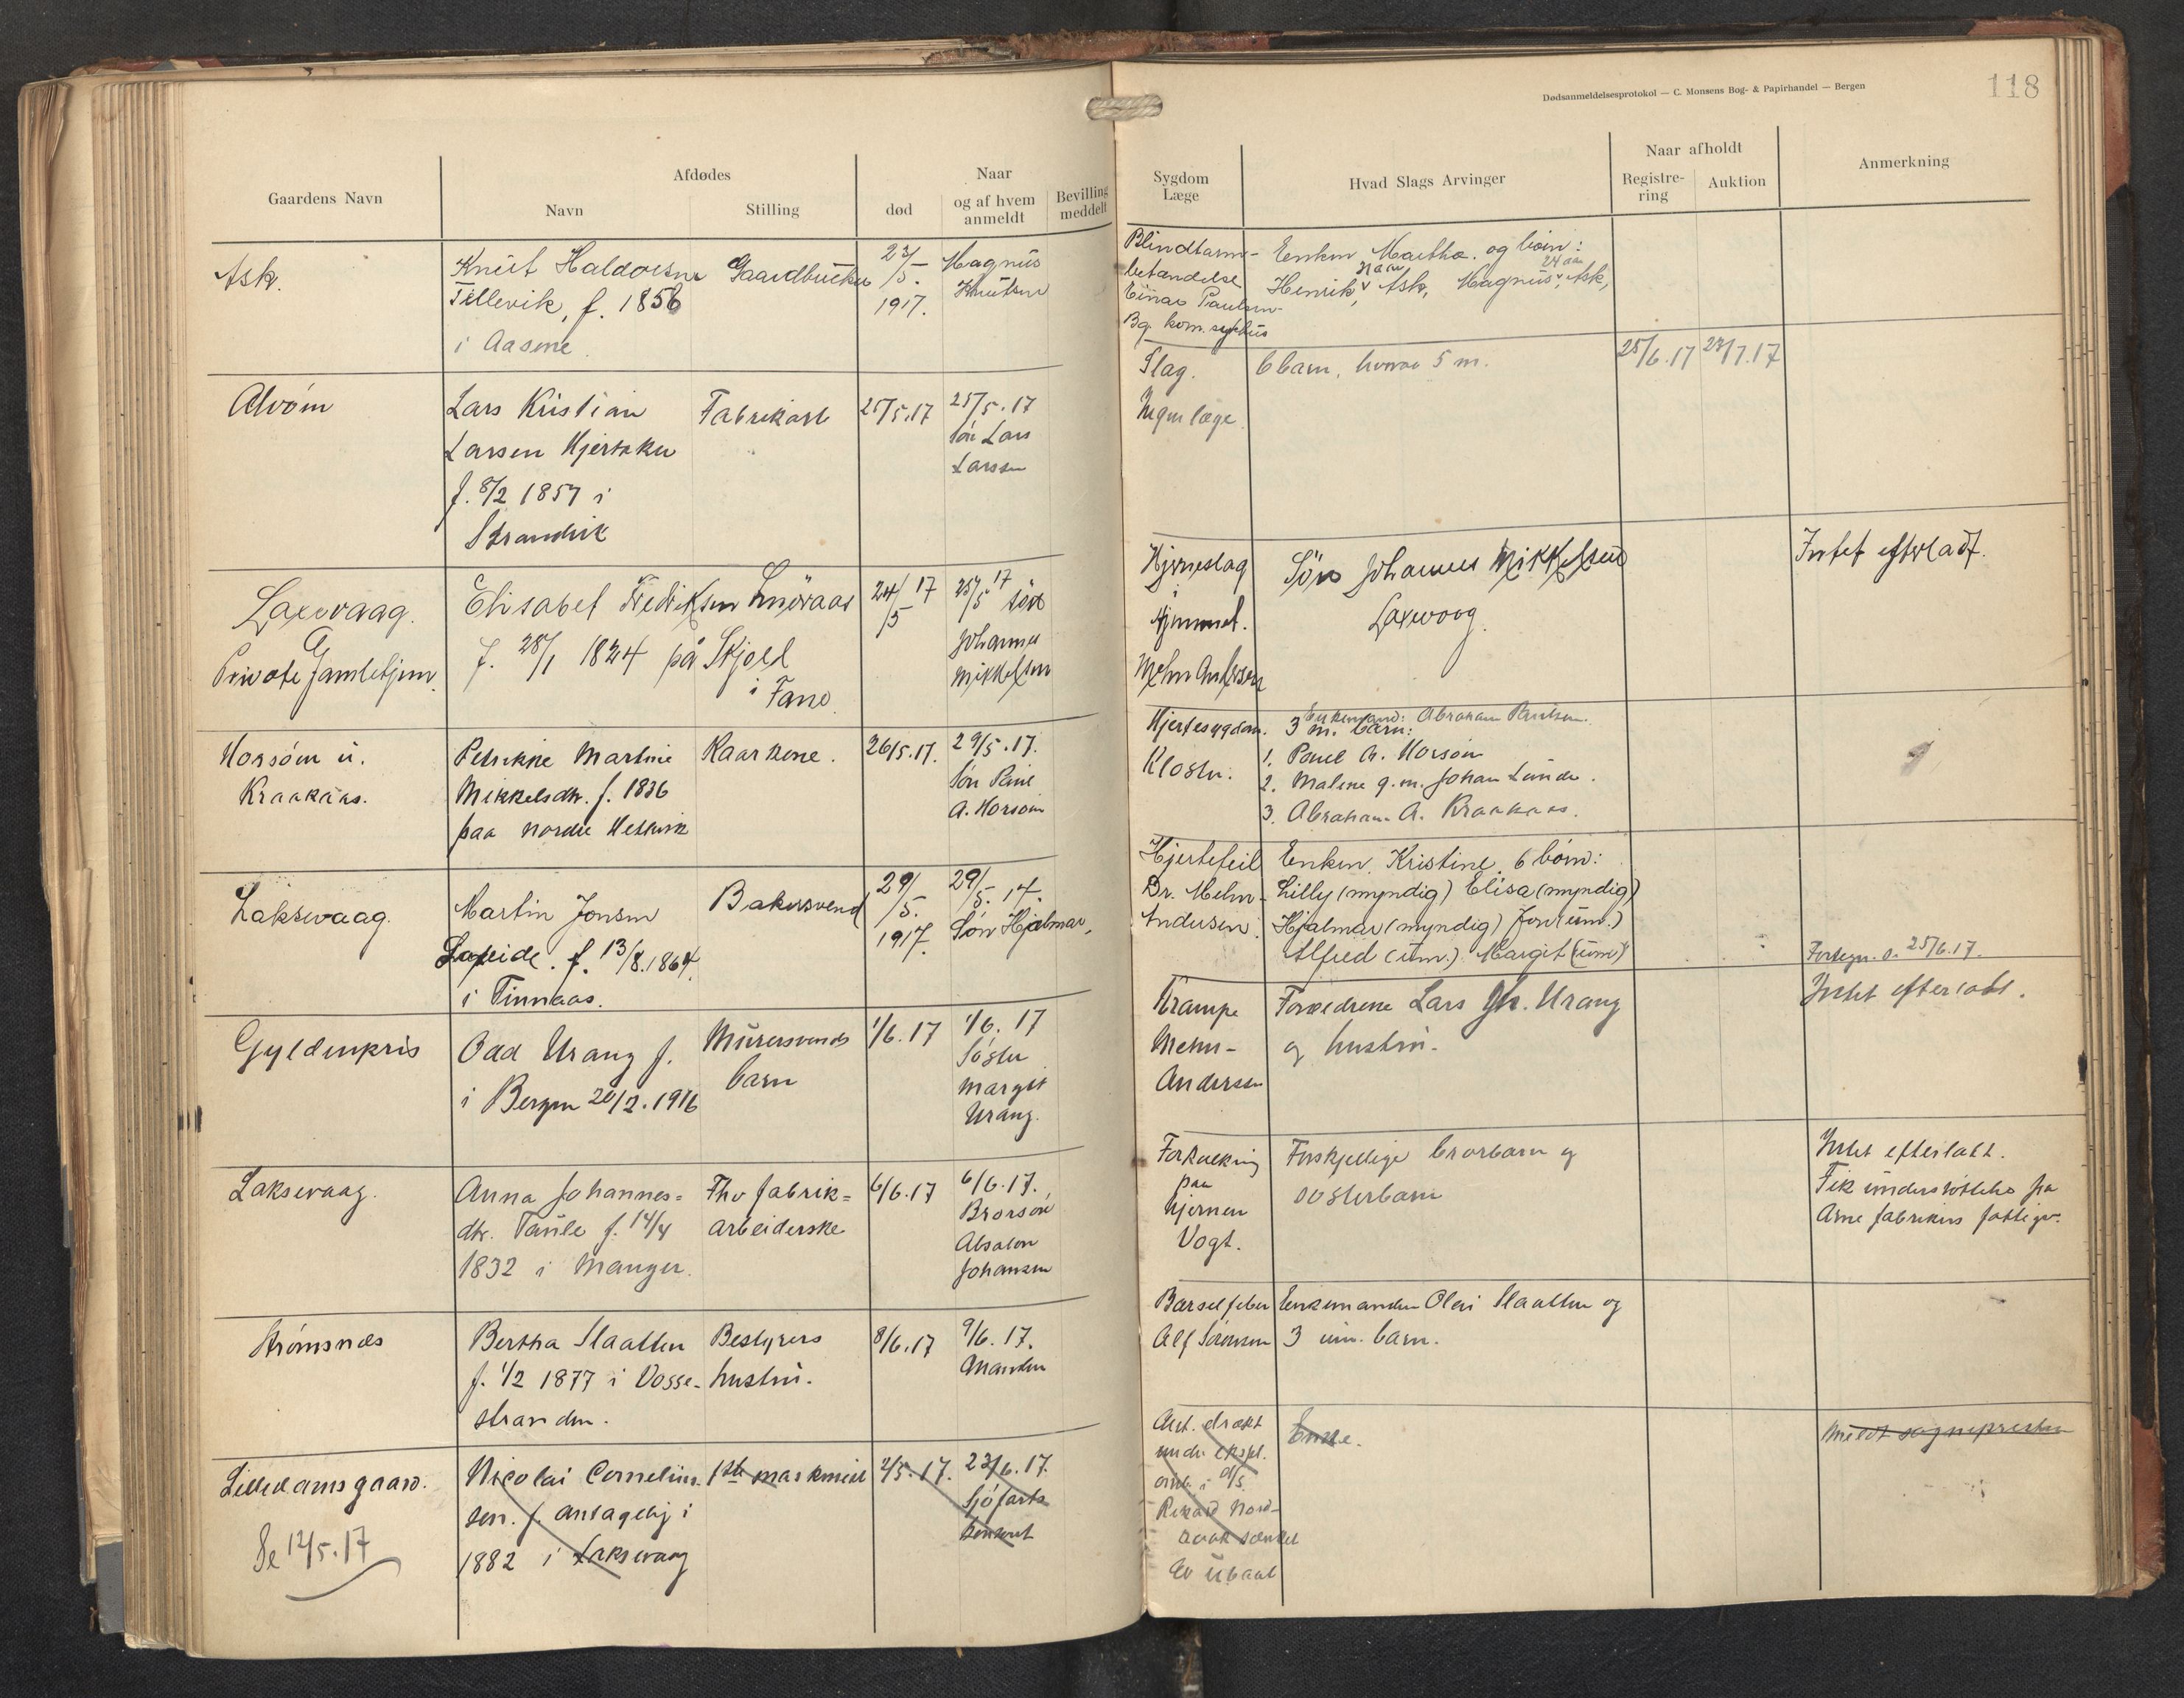 Dødsanmeldelsesprotokol — C. Monsens Bog- & Papirhandel — Bergen
118
Gaardens Navn
Afdødes
Navn
Stilling
død
Naar
og af hvem
anmeldt
Bevilling
meddelt
Sygdom
Læge
Hvad Slags Arvinger
Naar afholdt
Registre-
ring
Auktion
Anmerkning
Ask.
Knut Haldorsen
Tellevik, f. 1856
i Aasene
Gaardbruker
23/5.
1917.
Magnus
Knutsen
Blindtarm-
betændelse
Einar Paulsen
Bg. kom. sykhus
Enken Martha. og børn:
Henrik, Ask, Magnus, Ask,
24 aar
Alvøen
Lars Kristian
Larsen Hjertaker
f. 8/2 1857 i
Strandvik
Fabrikarb
25/5.17
25/5.17
søn Lars
Larsen
Slag.
Ingen læge.
6 barn, hvorav 5 m.
25/6.17
23/7.17
Laxevaag.
Private Gamlehjem.
Elisabet Fredriksen Snøraas
f. 28/1 1824 på Skjold
i Fane.
24/5 17
25/5 17
søn
Johannes
Mikkelsen
Hjerneslag
Hjemmet.
Mehn Andersen
Søn Johannes Mikkelsen
Laxevoog.
Intet efterladt.
Horsøen u.
Kraakaas.
Petrikke Martine
Mikkelsdtr. f. 1836
paa nordre Hetlevik
Kaarkone.
26/5.17.
29/5.17.
Søn Paul
A. Horsøen
Hjertesygdom.
Kloster.
Enkemand: Abraham Paulsen.
3 m. barn:
1. Pouel A. Horsøen
2. Malene g.m. Johan Lunde.
3. Abraham A. Kraakaas.
Laksevaag.
Martin Jonsen
Lapeide. f. 13/8.1864
i Finnaas.
Bakersvend
29/5.
1917.
29/5.17.
Søn Hjalmar,
Hjertefeil
Dr. Mehn-
Andersen
Enken Kristine. 6 børn:
Lilly (myndig) Elisa (myndig)
Hjalmar (myndig) Jon (um.)
Alfred (um.) Margit (um)
Fortegn. o. 25/6.17.
Gyldenpris
Odd Urang f.
i Bergen 20/2.1916
Murersvends
barn
1/6.17
1/6.17
Søster
Margit
Urang.
Krampe
Mehn-
Andersen
Forældrene Lars Joh. Urang
og hustru.
Intet efterladt.
Laksevaag.
Anna Johannes=
dtr. Taule f. 14/4
1832 i Manger.
Fhv fabrik=
arbeiderske
6/6.17
6/6.17.
Brorsøn
Absalon
Johansen
Forkalkning
paa
hjernen
Vogt.
Forskjellige brorbarn og
søsterbarn
Intet efterlatt.
Fik understøttelse fra
Arne fabrikers fattigv.
Strømsnes
Bertha Slaatten
f. 1/2 1877 i Vosse-
stranden.
Bestyrers
hustru.
8/6.17
9/6.17.
Manden
Barselfeber
Alf Sørensen
Enkemanden Olai Slaatten og
3 um. barn.
Lilledamsgaard.
Se 12/5.17
Nicolai Cornelius-
sen. f. antagelig i
1882 i Laksevaag
1ste maskinist
2/5.17.
23/6.17.
Sjøfarts
kontoret
Ant. dræpt
under ekspl.
omb. i D/S
Rikard Nord-
raak sænket
av Ubaat
Enke.
Meldt sognepresten